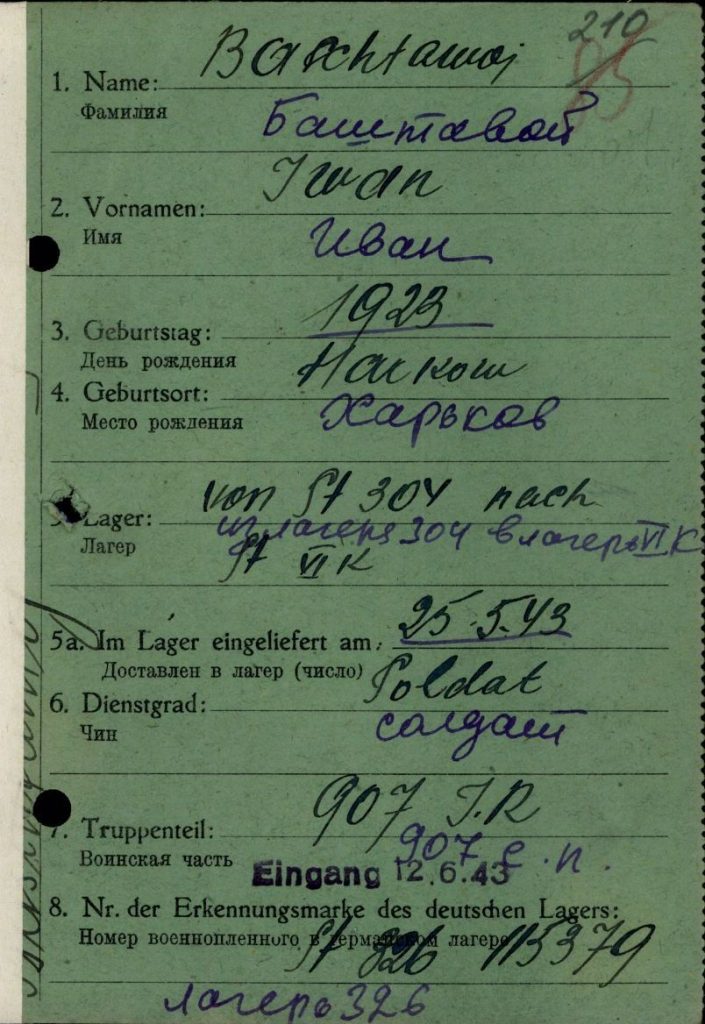 210
85
Baschtawoj
1. Name:
Фамилия
Баштавой
Iwan
2. Vornamen:
Имя
Иван
1923
3. Geburtstag:
День рождения
4. Geburtsort:
Харьков
Место рождения
von St 304 nach
5. Lager:
из лагеря 304 в лагерь VI K
Лагер
St VI K
25.5.43
5a. Im Lager eingeliefert am:
Доставлен в лагер (число)
Soldat
6. Dienstgrad:
солдат
Чин
907 I.R
7. Truppenteil:
907 с.п.
Воинская часть
Eingang 12.6.43
8. Nr. der Erkennungsmarke des deutschen Lagers:
Номер военнопленного в германском лагере
St 326 115379
лагерь 326